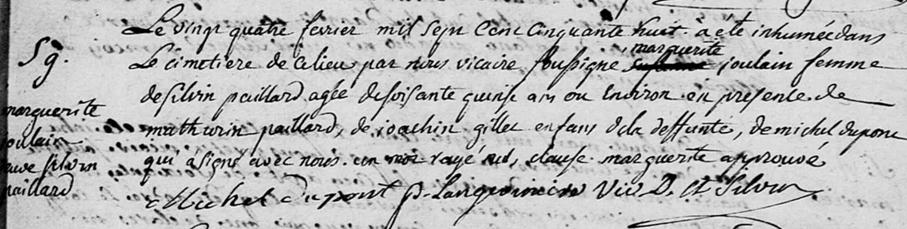 Le vingt quatre fevrier mil sept cent cinquante huit a été inhumée dans
Sg.
marguerite
Le cimetiere de ce lieu par nous vicaire soussigné joulain femme
de silvin paillard agée de soisante quinse ans ou environ en presence de
marguerite
mathurin paillard, de joachin gillet enfans de la deffunte, de michel dupont
joulain
qui a signé avec nous. un mot rayé nul, clause marguerite approuvé
silvin
paillard
Michel dupont Vic. D. St Silvin